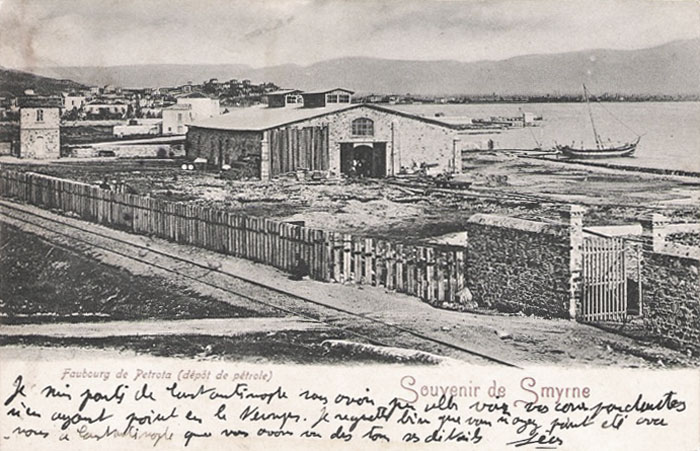 Faubourg de Petrota (dépôt de pétrole)
Souvenir de Smyrne
Je suis parti de Constantinople sans avoir pu aller voir vos correspondantes
n'en ayant point eu le
Je regrette bien que vous n'ayez point été avec
nous à Constantinople que vous avons vu des tous ses détails